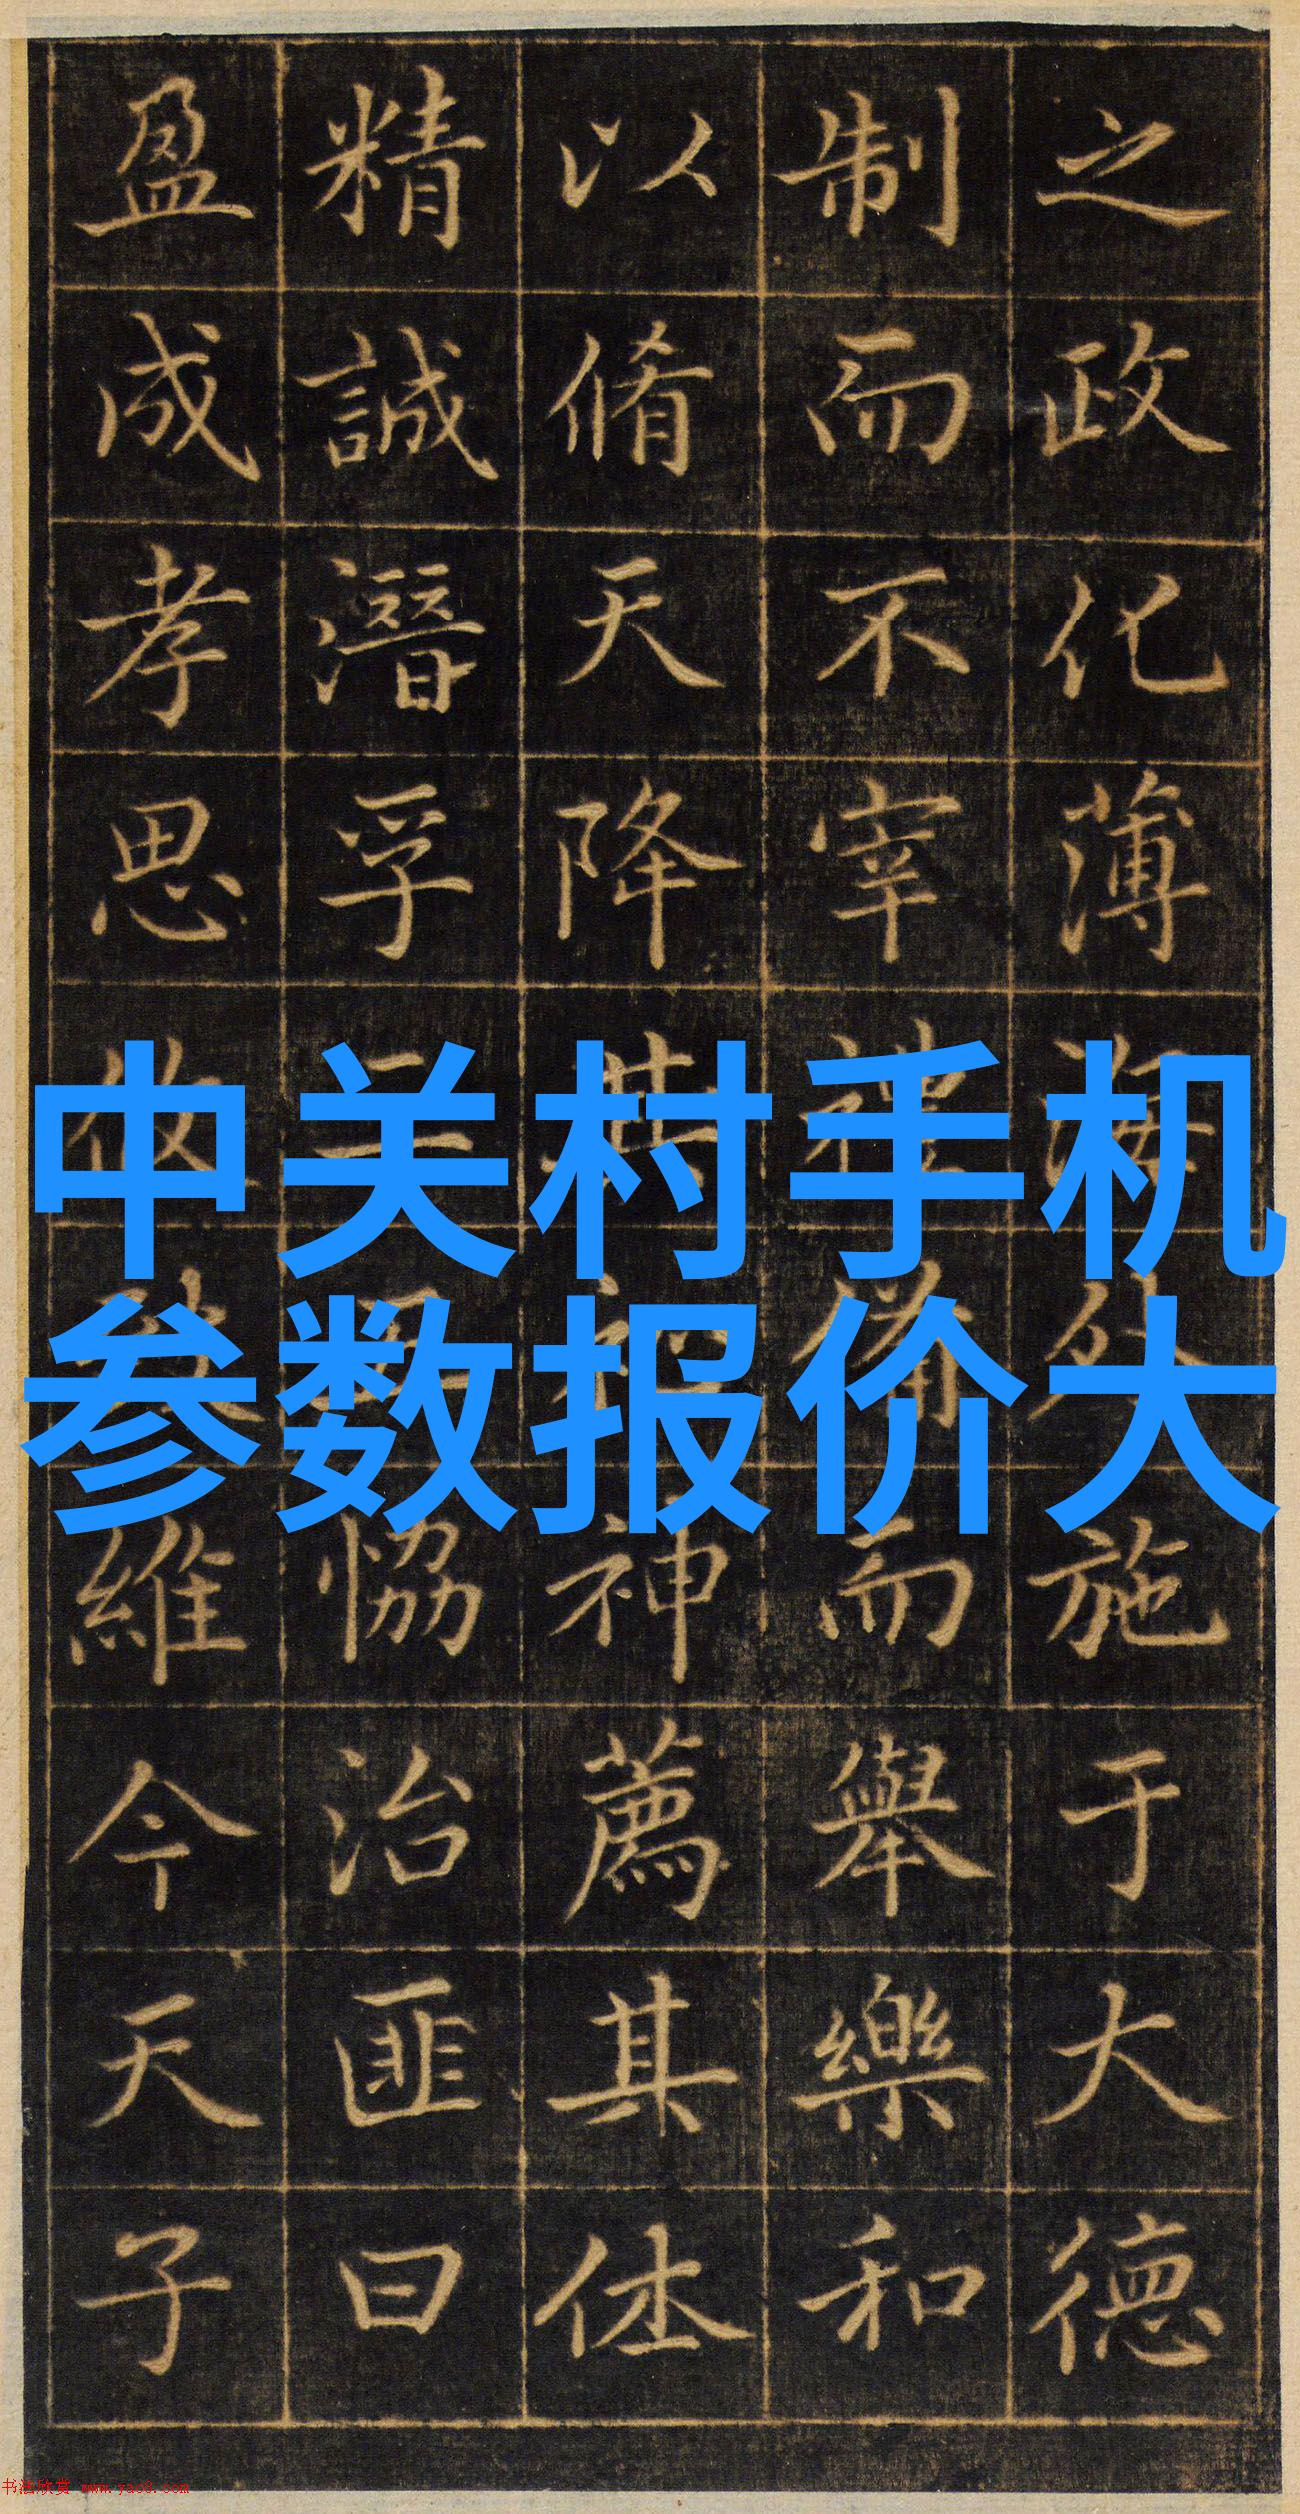 之政化薄海外施于大德
制而不宰禮備而舉樂和
以脩天降其神薦其休
精誠潛孚恊治匪曰
盈成孝思維今天子
中关村手机
参数报价大
书法欣赏 www.yac8.com